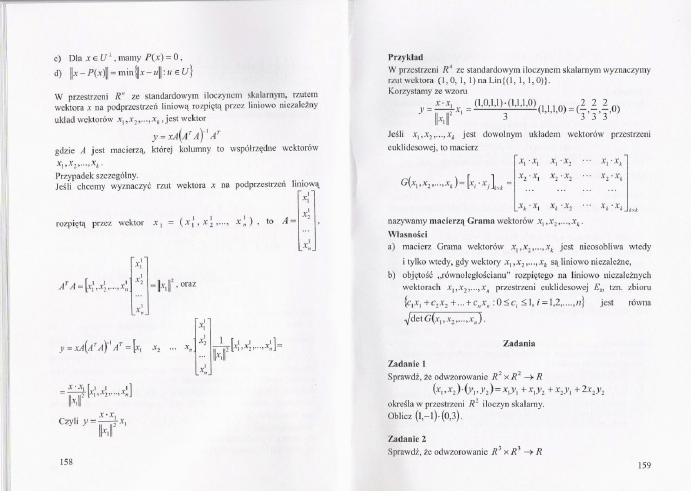 c) Dla x ∈ U⊥, mamy P(x) = 0,
d) ‖x − P(x)‖ = min{‖x − u‖ : u ∈ U}
W przestrzeni Rⁿ ze standardowym iloczynem skalarnym, rzutem
wektora x na podprzestrzeń liniową rozpiętą przez liniowo niezależny
układ wektorów x₁, x₂,..., xₖ, jest wektor
y = xA(AᵀA)⁻¹Aᵀ
gdzie A jest macierzą, której kolumny to współrzędne wektorów
x₁, x₂,..., xₖ.
Przypadek szczególny.
Jeśli chcemy wyznaczyć rzut wektora x na podprzestrzeń liniową
rozpiętą przez wektor x₁ = (x₁¹, x₂¹,..., xₙ¹), to A = [x₁¹ x₂¹ ... xₙ¹],
AᵀA = [x₁¹, x₂¹,..., xₙ¹] [x₁¹ x₂¹ ... xₙ¹] = ‖x₁‖², oraz
y = xA(AᵀA)⁻¹Aᵀ = [x₁ x₂ ... xₙ] [x₁¹ x₂¹ ... xₙ¹] 1/‖x₁‖² [x₁¹, x₂¹,..., xₙ¹] =
= x·x₁/‖x₁‖² [x₁¹, x₂¹,..., xₙ¹]
Czyli y = x·x₁/‖x₁‖² x₁
158
Przykład
W przestrzeni R⁴ ze standardowym iloczynem skalarnym wyznaczymy
rzut wektora (1, 0, 1, 1) na Lin{(1, 1, 1, 0)}.
Korzystamy ze wzoru
y = x·x₁/‖x₁‖² x₁ = (1,0,1,1)·(1,1,1,0)/3 (1,1,1,0) = (2/3, 2/3, 2/3, 0)
Jeśli x₁, x₂,..., xₖ jest dowolnym układem wektorów przestrzeni
euklidesowej, to macierz
G(x₁, x₂,..., xₖ) = [xᵢ·xⱼ]ₖₓₖ = [x₁·x₁ x₁·x₂ ... x₁·xₖ
x₂·x₁ x₂·x₂ ... x₂·xₖ
... ... ... ...
xₖ·x₁ xₖ·x₂ ... xₖ·xₖ]ₖₓₖ
nazywamy macierzą Grama wektorów x₁, x₂,..., xₖ.
Własności
a) macierz Grama wektorów x₁, x₂,..., xₖ jest nieosobliwa wtedy
i tylko wtedy, gdy wektory x₁, x₂,..., xₖ są liniowo niezależne,
b) objętość „równoległościanu” rozpiętego na liniowo niezależnych
wektorach x₁, x₂,..., xₙ przestrzeni euklidesowej Eₙ, tzn. zbioru
{c₁x₁ + c₂x₂ + ... + cₙxₙ : 0 ≤ cᵢ ≤ 1, i = 1,2,....,n} jest równa
√det G(x₁, x₂,..., xₙ).
Zadania
Zadanie 1
Sprawdź, że odwzorowanie R² × R² → R
(x₁, x₂)·(y₁, y₂) = x₁y₁ + x₁y₂ + x₂y₁ + 2x₂y₂
określa w przestrzeni R² iloczyn skalarny.
Oblicz (1,−1)·(0,3).
Zadanie 2
Sprawdź, że odwzorowanie R³ × R³ → R
159